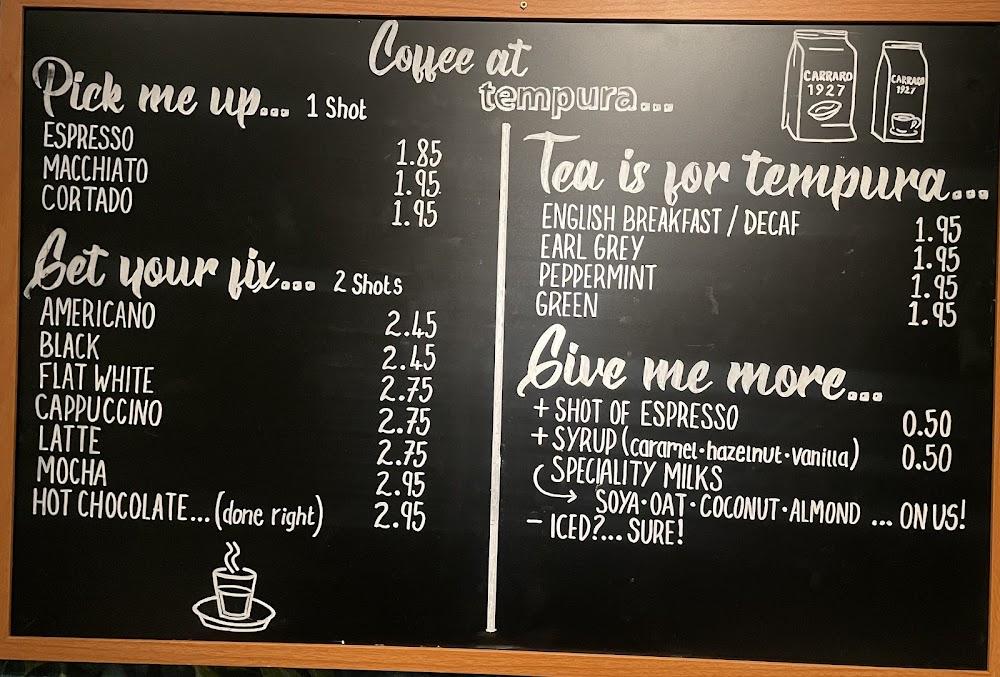 Coffee at
tempura...
CARRARO
1927
CARRARO
1927
Pick me up... 1 Shot
ESPRESSO 1.85
MACCHIATO 1.95
CORTADO 1.95
Get your fix... 2 Shots
AMERICANO 2.45
BLACK 2.45
FLAT WHITE 2.75
CAPPUCCINO 2.75
LATTE 2.75
MOCHA 2.95
HOT CHOCOLATE... (done right) 2.95
Tea is for tempura...
ENGLISH BREAKFAST / DECAF 1.95
EARL GREY 1.95
PEPPERMINT 1.95
GREEN 1.95
Give me more...
+ SHOT OF ESPRESSO 0.50
+ SYRUP (caramel · hazelnut · vanilla) 0.50
SPECIALITY MILKS
SOYA · OAT · COCONUT · ALMOND ... ON US!
- ICED?... SURE!